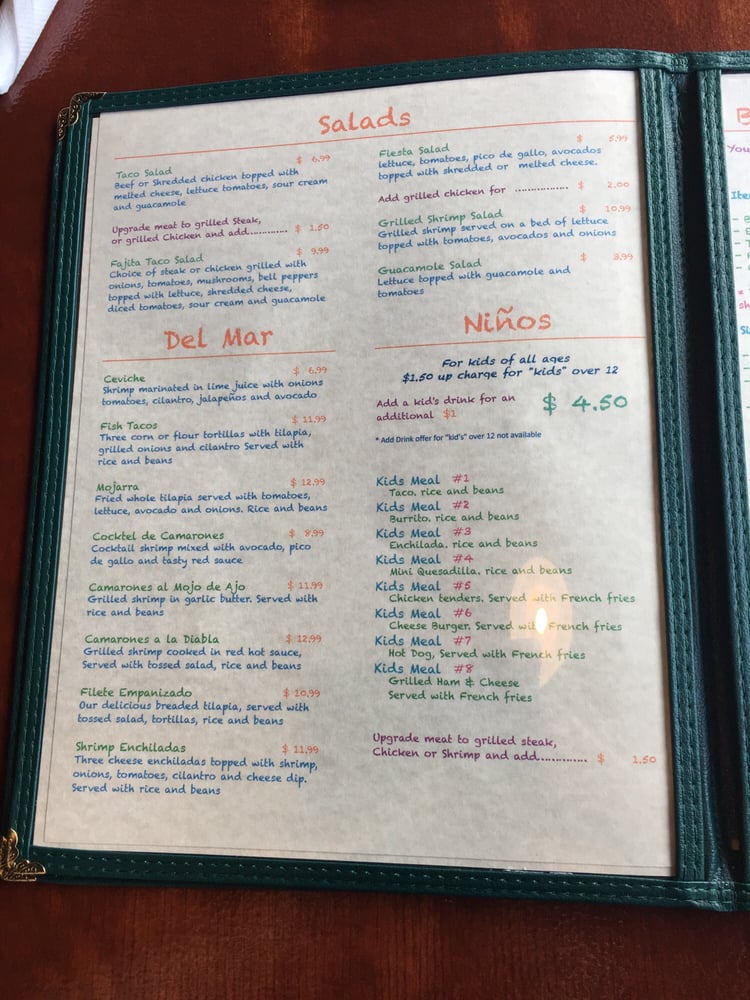 Salads
Taco Salad $ 6.99
Beef or Shredded chicken topped with
melted cheese, lettuce tomatoes, sour cream
and guacamole
Upgrade meat to grilled Steak,
or grilled Chicken and add............. $ 1.50
Fajita Taco Salad $ 9.99
Choice of steak or chicken grilled with
onions, tomatoes, mushrooms, bell peppers
topped with lettuce, shredded cheese,
diced tomatoes, sour cream and guacamole
Fiesta Salad $ 5.99
lettuce, tomatoes, pico de gallo, avocados
topped with shredded or melted cheese.
Add grilled chicken for ................ $ 2.00
Grilled Shrimp Salad $ 10.99
Grilled shrimp served on a bed of lettuce
topped with tomatoes, avocados and onions
Guacamole Salad $ 3.99
Lettuce topped with guacamole and
tomatoes
Del Mar
Ceviche $ 6.99
Shrimp marinated in lime juice with onions
tomatoes, cilantro, jalapeños and avocado
Fish Tacos $ 11.99
Three corn or flour tortillas with tilapia,
grilled onions and cilantro Served with
rice and beans
Mojarra $ 12.99
Fried whole tilapia served with tomatoes,
lettuce, avocado and onions. Rice and beans
Cocktel de Camarones $ 8.99
Cocktail shrimp mixed with avocado, pico
de gallo and tasty red sauce
Camarones al Mojo de Ajo $ 11.99
Grilled shrimp in garlic butter. Served with
rice and beans
Camarones a la Diabla $ 12.99
Grilled shrimp cooked in red hot sauce,
Served with tossed salad, rice and beans
Filete Empanizado $ 10.99
Our delicious breaded tilapia, served with
tossed salad, tortillas, rice and beans
Shrimp Enchiladas $ 11.99
Three cheese enchiladas topped with shrimp,
onions, tomatoes, cilantro and cheese dip.
Served with rice and beans
Niños
For kids of all ages
$1.50 up charge for "kids" over 12
Add a kid's drink for an
additional $1
$ 4.50
* Add Drink offer for "kid's" over 12 not available
Kids Meal #1
Taco, rice and beans
Kids Meal #2
Burrito, rice and beans
Kids Meal #3
Enchilada, rice and beans
Kids Meal #4
Mini Quesadilla, rice and beans
Kids Meal #5
Chicken tenders. Served with French fries
Kids Meal #6
Cheese Burger. Served with French fries
Kids Meal #7
Hot Dog, Served with French fries
Kids Meal #8
Grilled Ham & Cheese
Served with French fries
Upgrade meat to grilled steak,
Chicken or Shrimp and add............. $ 1.50
You